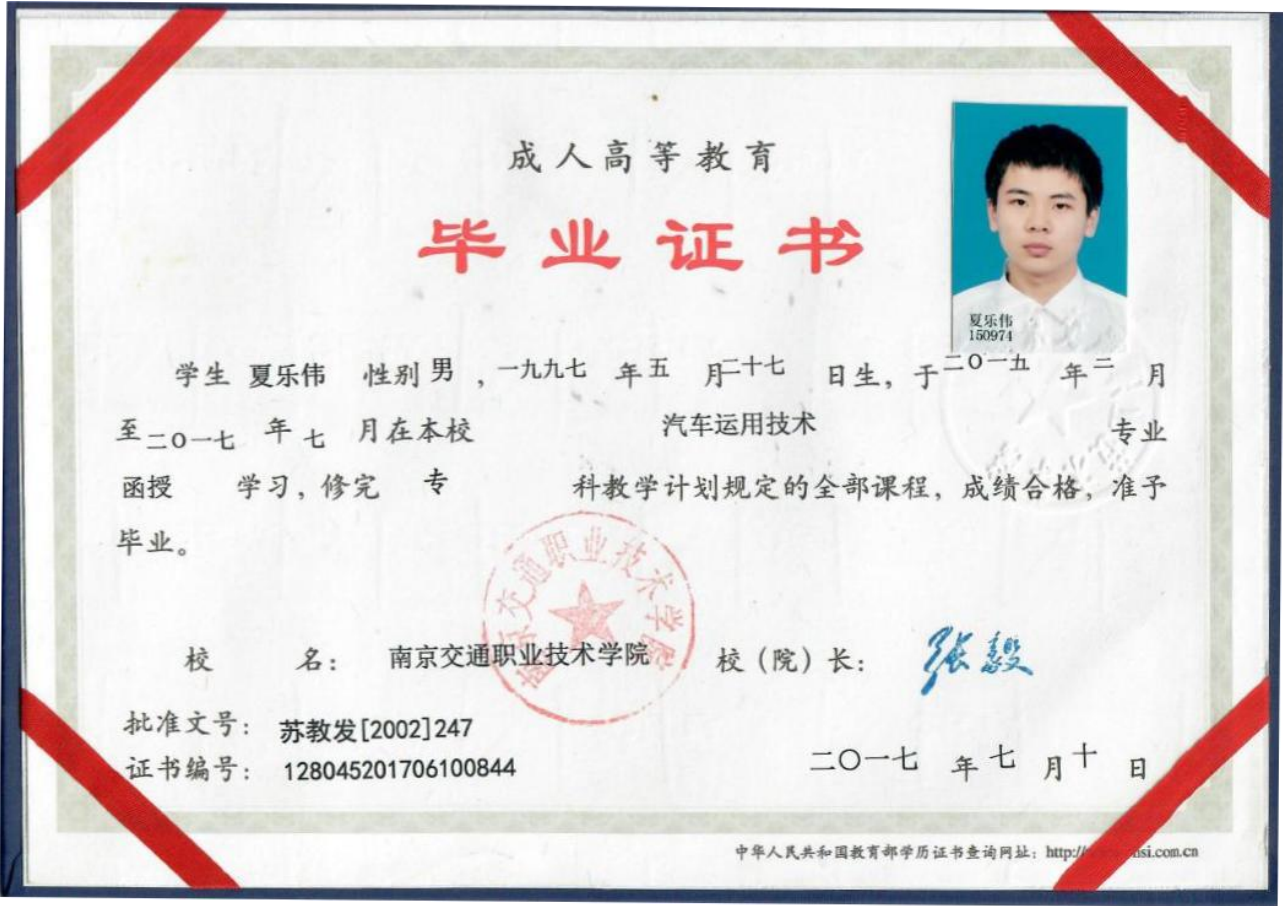 成人高等教育
毕业证书
夏乐伟
150974
学生 夏乐伟 性别 男 ,一九九七 年 五 月 二十七 日生, 于 二〇一五 年 二 月
至 二〇一七 年 七 月在本校 汽车运用技术 专业
函授 学习, 修完 专 科教学计划规定的全部课程, 成绩合格, 准予
毕业。
南京交通职业技术学院
校 名: 南京交通职业技术学院 校(院)长: 张毅
批准文号: 苏教发[2002]247
证书编号: 128045201706100844
二〇一七 年 七 月 十 日
中华人民共和国教育部学历证书查询网址: http://